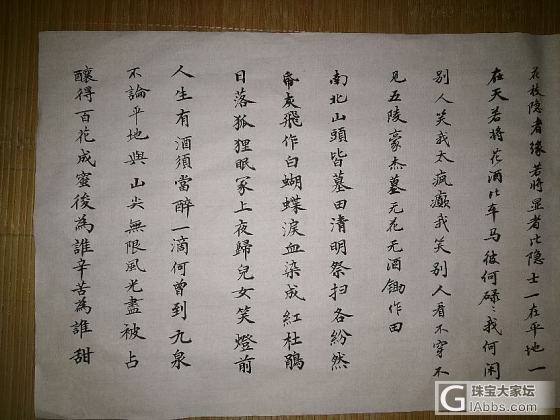 花枝隐者缘若将显者比隐士一在平地一
在天若将花酒比车马彼何碌〻我何闲
别人笑我太疯癫我笑别人看不穿不
见五陵豪杰墓无花无酒锄作田
南北山頭皆墓田清明祭扫各紛然
帋灰飛作白蝴蝶淚血染成紅杜鵑
日落狐狸眠冢上夜歸兒女笑燈前
人生有酒須當醉一滴何曾到九泉
不論平地與山尖無限風光盡被占
釀得百花成蜜後為誰辛苦為誰甜
珠宝大家坛
GiAbbs.com